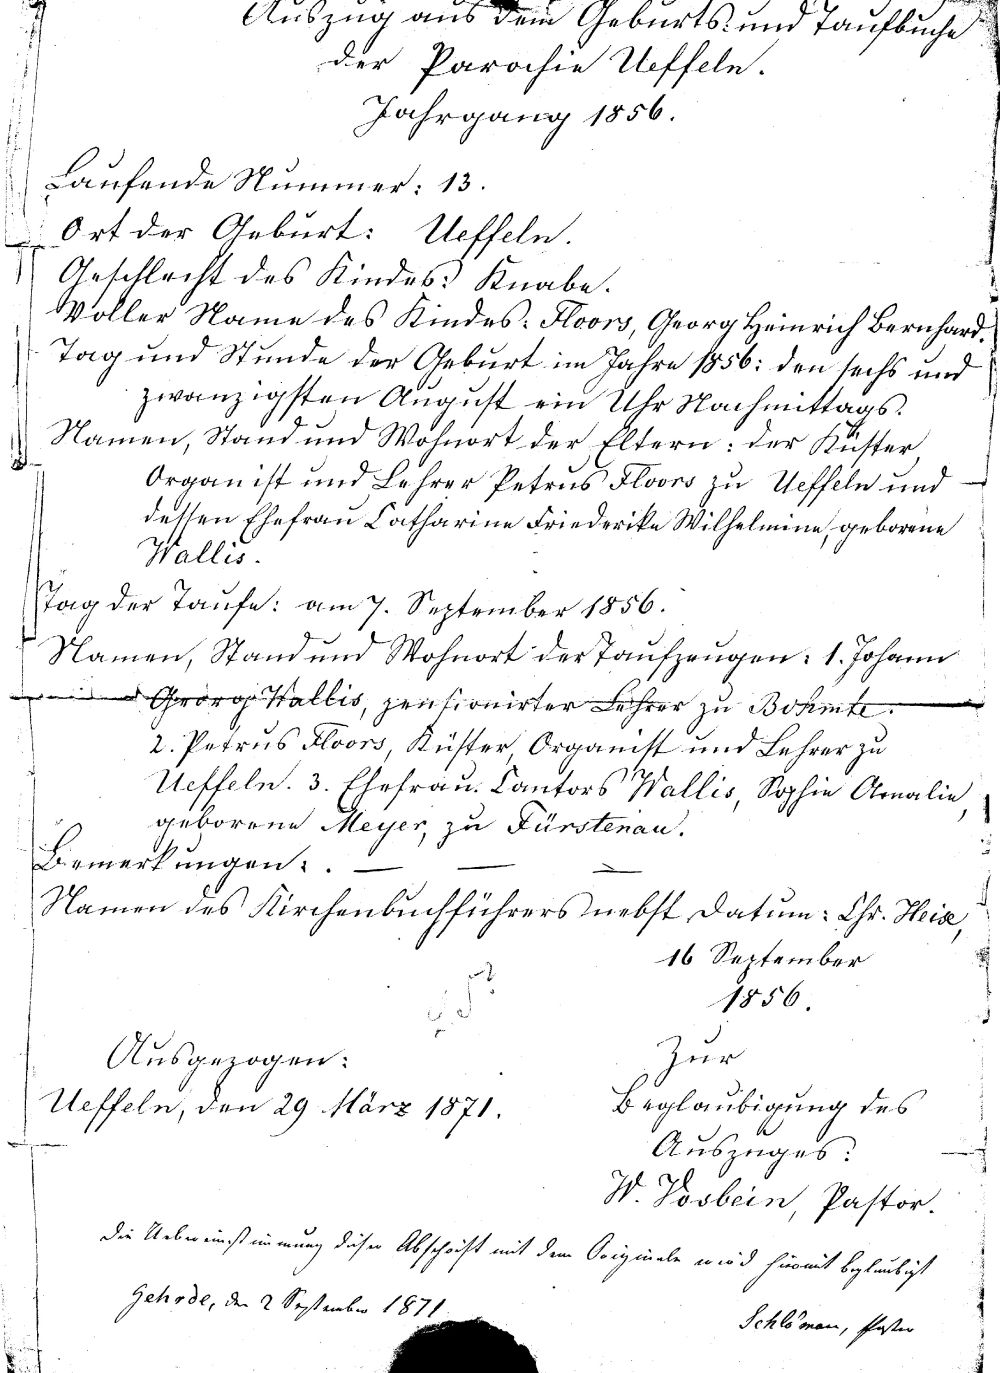 Auszug aus dem Geburts- und Taufbuche
der Parochie Ueffeln.
Jahrgang 1856.
Laufende Nummer: 13.
Ort der Geburt: Ueffeln.
Geschlecht des Kindes: Knabe.
Voller Name des Kindes: Floors, Georg Heinrich Bernhard.
Tag und Stunde der Geburt im Jahre 1856: den sechs und
zwanzigsten August ein Uhr Nachmittags.
Namen, Stand und Wohnort der Eltern: der Küster,
Organist und Lehrer Petrus Floors zu Ueffeln und
dessen Ehefrau Catharine Friederike Wilhelmine, geborene
Wallis.
Tag der Taufe: am 7. September 1856.
Namen, Stand und Wohnort der Taufzeugen: 1. Johann
Georg Wallis, pensionirter Lehrer zu Bohmte.
2. Petrus Floors, Küster, Organist und Lehrer zu
Ueffeln. 3. Ehefrau Cantors Wallis, Sophie Amalie,
geborene Meyer, zu Fürstenau.
Bemerkungen: . — — —
Namen des Kirchenbuchführers nebst Datum: Chr. Heise,
16 September
1856.
Ausgezogen:
Ueffeln, den 29 März 1871.
Zur
Beglaubigung des
Auszuges:
W. Vosbein, Pastor.
Die Uebereinstimmung dieser Abschrift mit dem Originale wird hiermit beglaubigt
Gehrde, den 2 September 1871.
Schlöman, Pastor